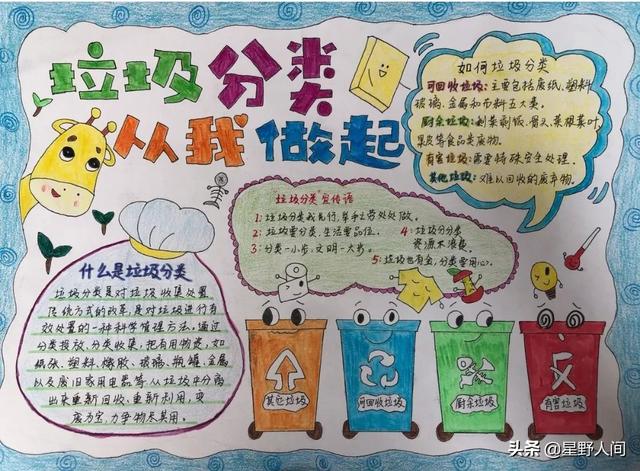 垃圾分类
从我做起
如何垃圾分类
可回收垃圾:主要包括废纸、塑料
玻璃、金属和布料五大类。
厨余垃圾:剩菜剩饭、骨头、菜根菜叶、
果皮等食品类废物。
有害垃圾:需要特殊安全处理。
其他垃圾:难以回收的废弃物。
垃圾分类"宣传语
1:垃圾分类我先行,举手之劳处处做。
2:垃圾要分类,生活要品位。
3:分类一小步,文明一大步。
4:垃圾分分分
资源不浪费。
5:垃圾也有金,分类要用心。
什么是垃圾分类
垃圾分类是对垃圾收集处置
传统方式的改革,是对垃圾进行有
效处置的一种科学管理方法。通过
分类投放、分类收集,把有用物资,如
纸张、塑料、橡胶、玻璃、瓶罐、金属
以及废旧家用电器等从垃圾中分离
出来重新回收、重新利用,变
废为宝,力争物尽其用。
其他垃圾
可回收垃圾
厨余垃圾
有害垃圾
头条 @星野人间